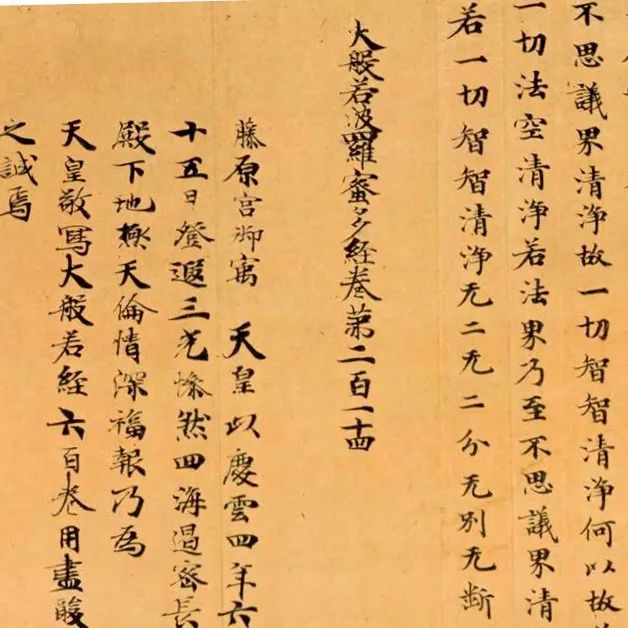 不思議界清浄故一切智智清浄何以故
一切法空清浄若法界乃至不思議界清
若一切智智清浄无二无二分无別无断
大般若波羅蜜多経巻第二百一十四
藤原宮御寓 天皇以慶雲四年六
十五日登遐三光惨然四海遏密長
殿下地極天倫情深福報乃為
天皇敬寫大般若経六百巻用盡酸
之誠焉